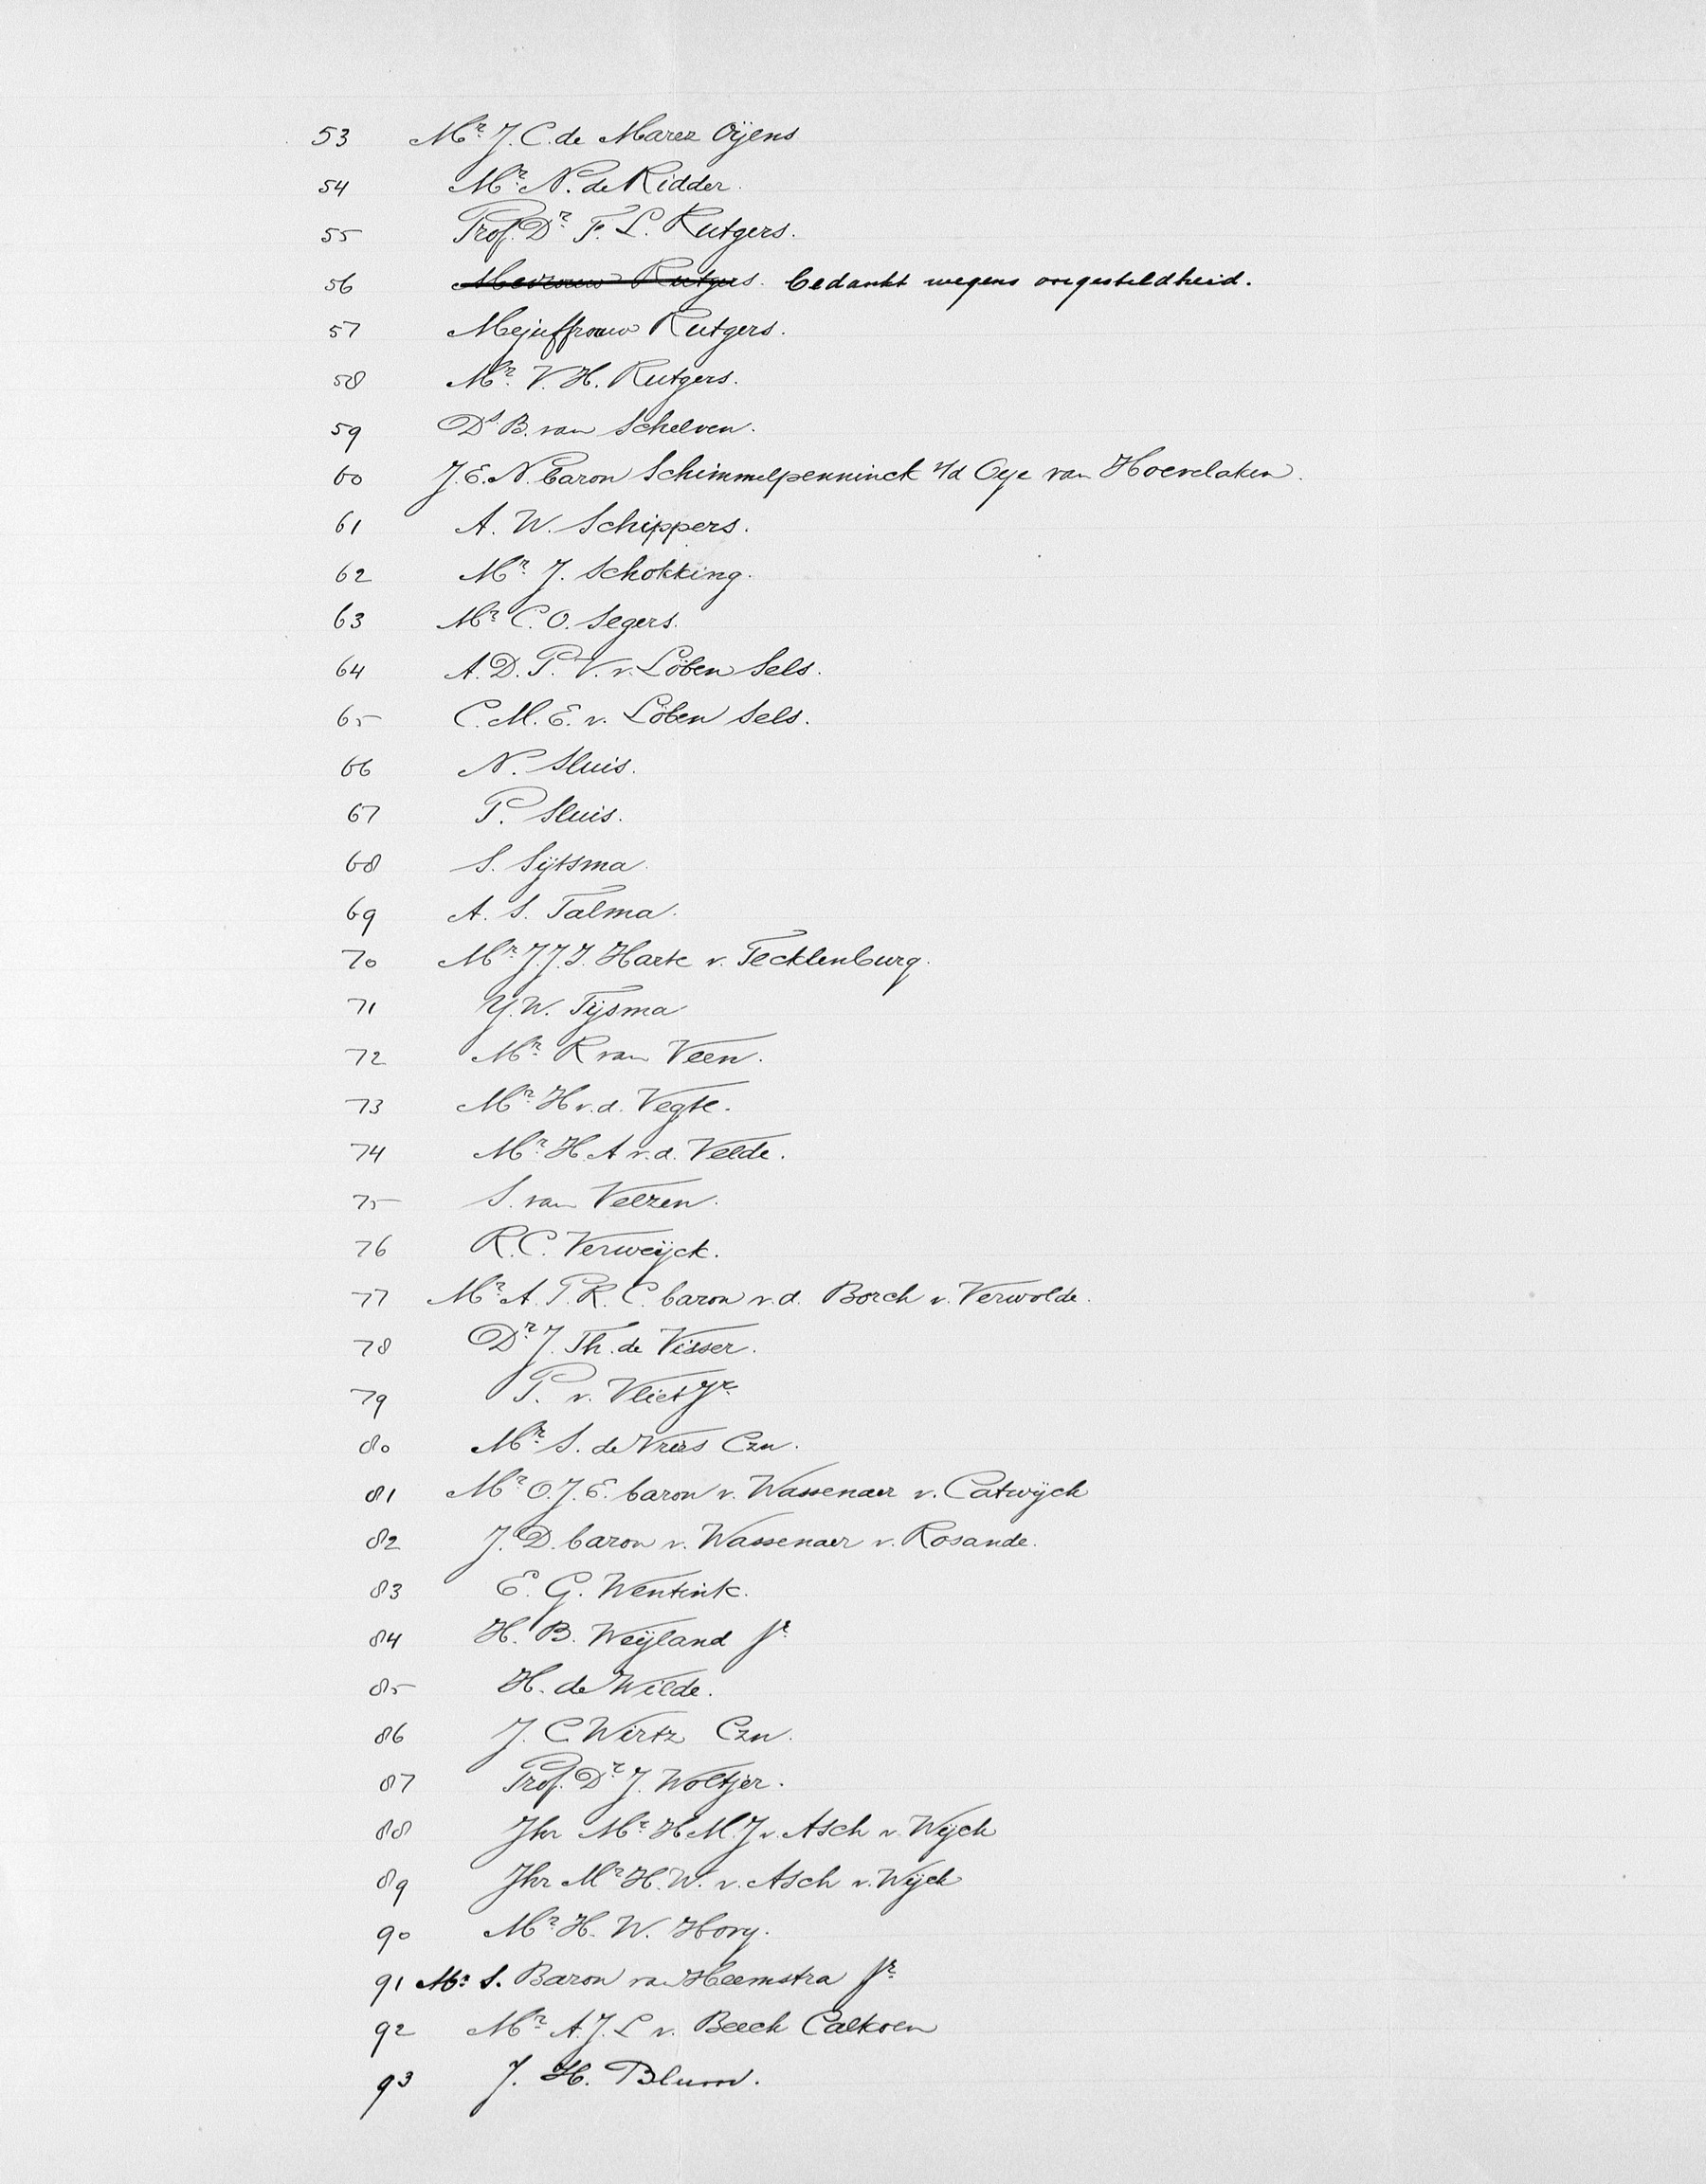 53 Mr. J. C. de Marez Oÿens
54 Mr. N. de Ridder.
55 Prof. Dr. F. L. Rutgers.
56 Mevrouw Rutgers. bedankt wegens ongesteldheid.
57 Mejuffrouw Rutgers.
58 Mr. V. H. Rutgers.
59 Ds B. van Schelven.
60 J. E. N. baron Schimmelpenninck v/d Oye van Hoevelaken.
61 A. W. Schippers.
62 Mr. J. Schokking.
63 Mr. C. O. Segers.
64 A. D. P. V. v. Löben Sels.
65 C. M. E. v. Löben Sels.
66 N. Sluis.
67 P. Sluis.
68 S. Sÿtsma.
69 A. S. Talma.
70 Mr. J. J. I. Harte v. Tecklenburg.
71 Y. W. Tÿsma
72 Mr. R van Veen.
73 Mr. H v. d. Vegte.
74 Mr. H. A v. d. Velde.
75 S. van Velzen.
76 R. C. Verweÿck.
77 Mr. A. P. R. C. baron v. d. Borch v. Verwolde.
78 Dr. J. Th. de Visser.
79 P. v. Vliet Jr.
80 Mr. S. de Vries Czn.
81 Mr. O. J. E. baron v. Wassenaer v. Catwÿck
82 J. D. baron v. Wassenaer v. Rosande.
83 E. G. Wentink.
84 H. B. Weÿland Jr.
85 H. de Wilde.
86 J. C. Wirtz Czn.
87 Prof. Dr. J. Woltjer.
88 Jhr Mr. H M. J v. Asch v. Wÿck
89 Jhr Mr. H. W. v. Asch v. Wÿck
90 Mr. H. W. Hovy.
91 Mr. S. Baron van Heemstra Jr.
92 Mr. A. J. L v. Beeck Calkoen
93 J. H. Blum.